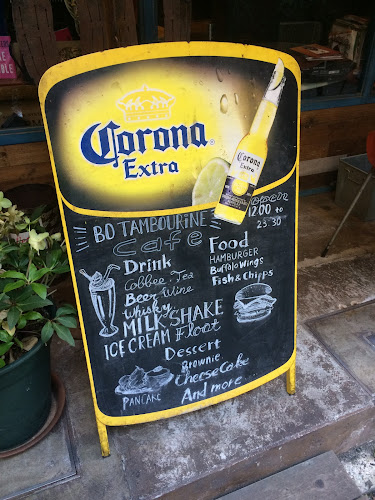 Corona®
Extra
Corona
Extra
BO TAMBOURINE
Cafe
OPEN
12:00 to
23.30
Drink
Coffee. Tea
Beer Wine
Whisky
MILK SHAKE
ICE CREAM Float
Food
HAMBURGER
Buffalo Wings
Fish & Chips
Dessert
Brownie
CheeseCake
And more
PANCAKE